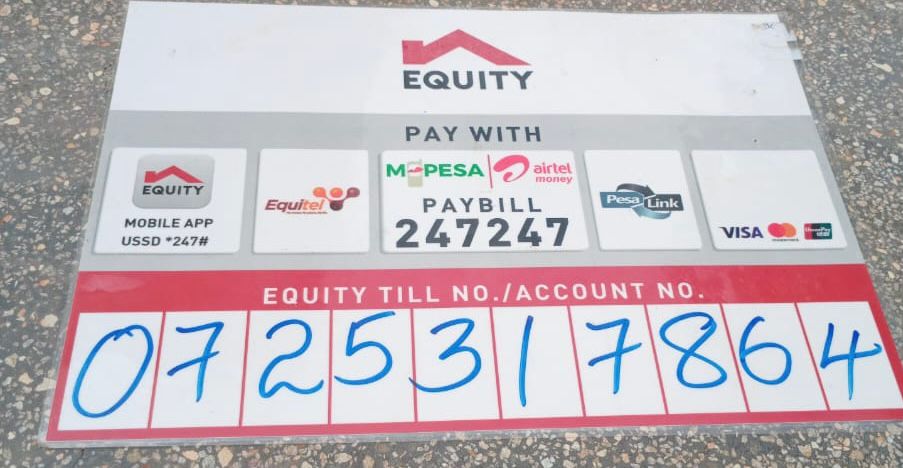 EQUITY
PAY WITH
EQUITY
MOBILE APP
USSD *247#
Equitel
M-PESA airtel money
PAYBILL
247247
Pesa Link
VISA mastercard UnionPay
EQUITY TILL NO./ACCOUNT NO.
0725317864